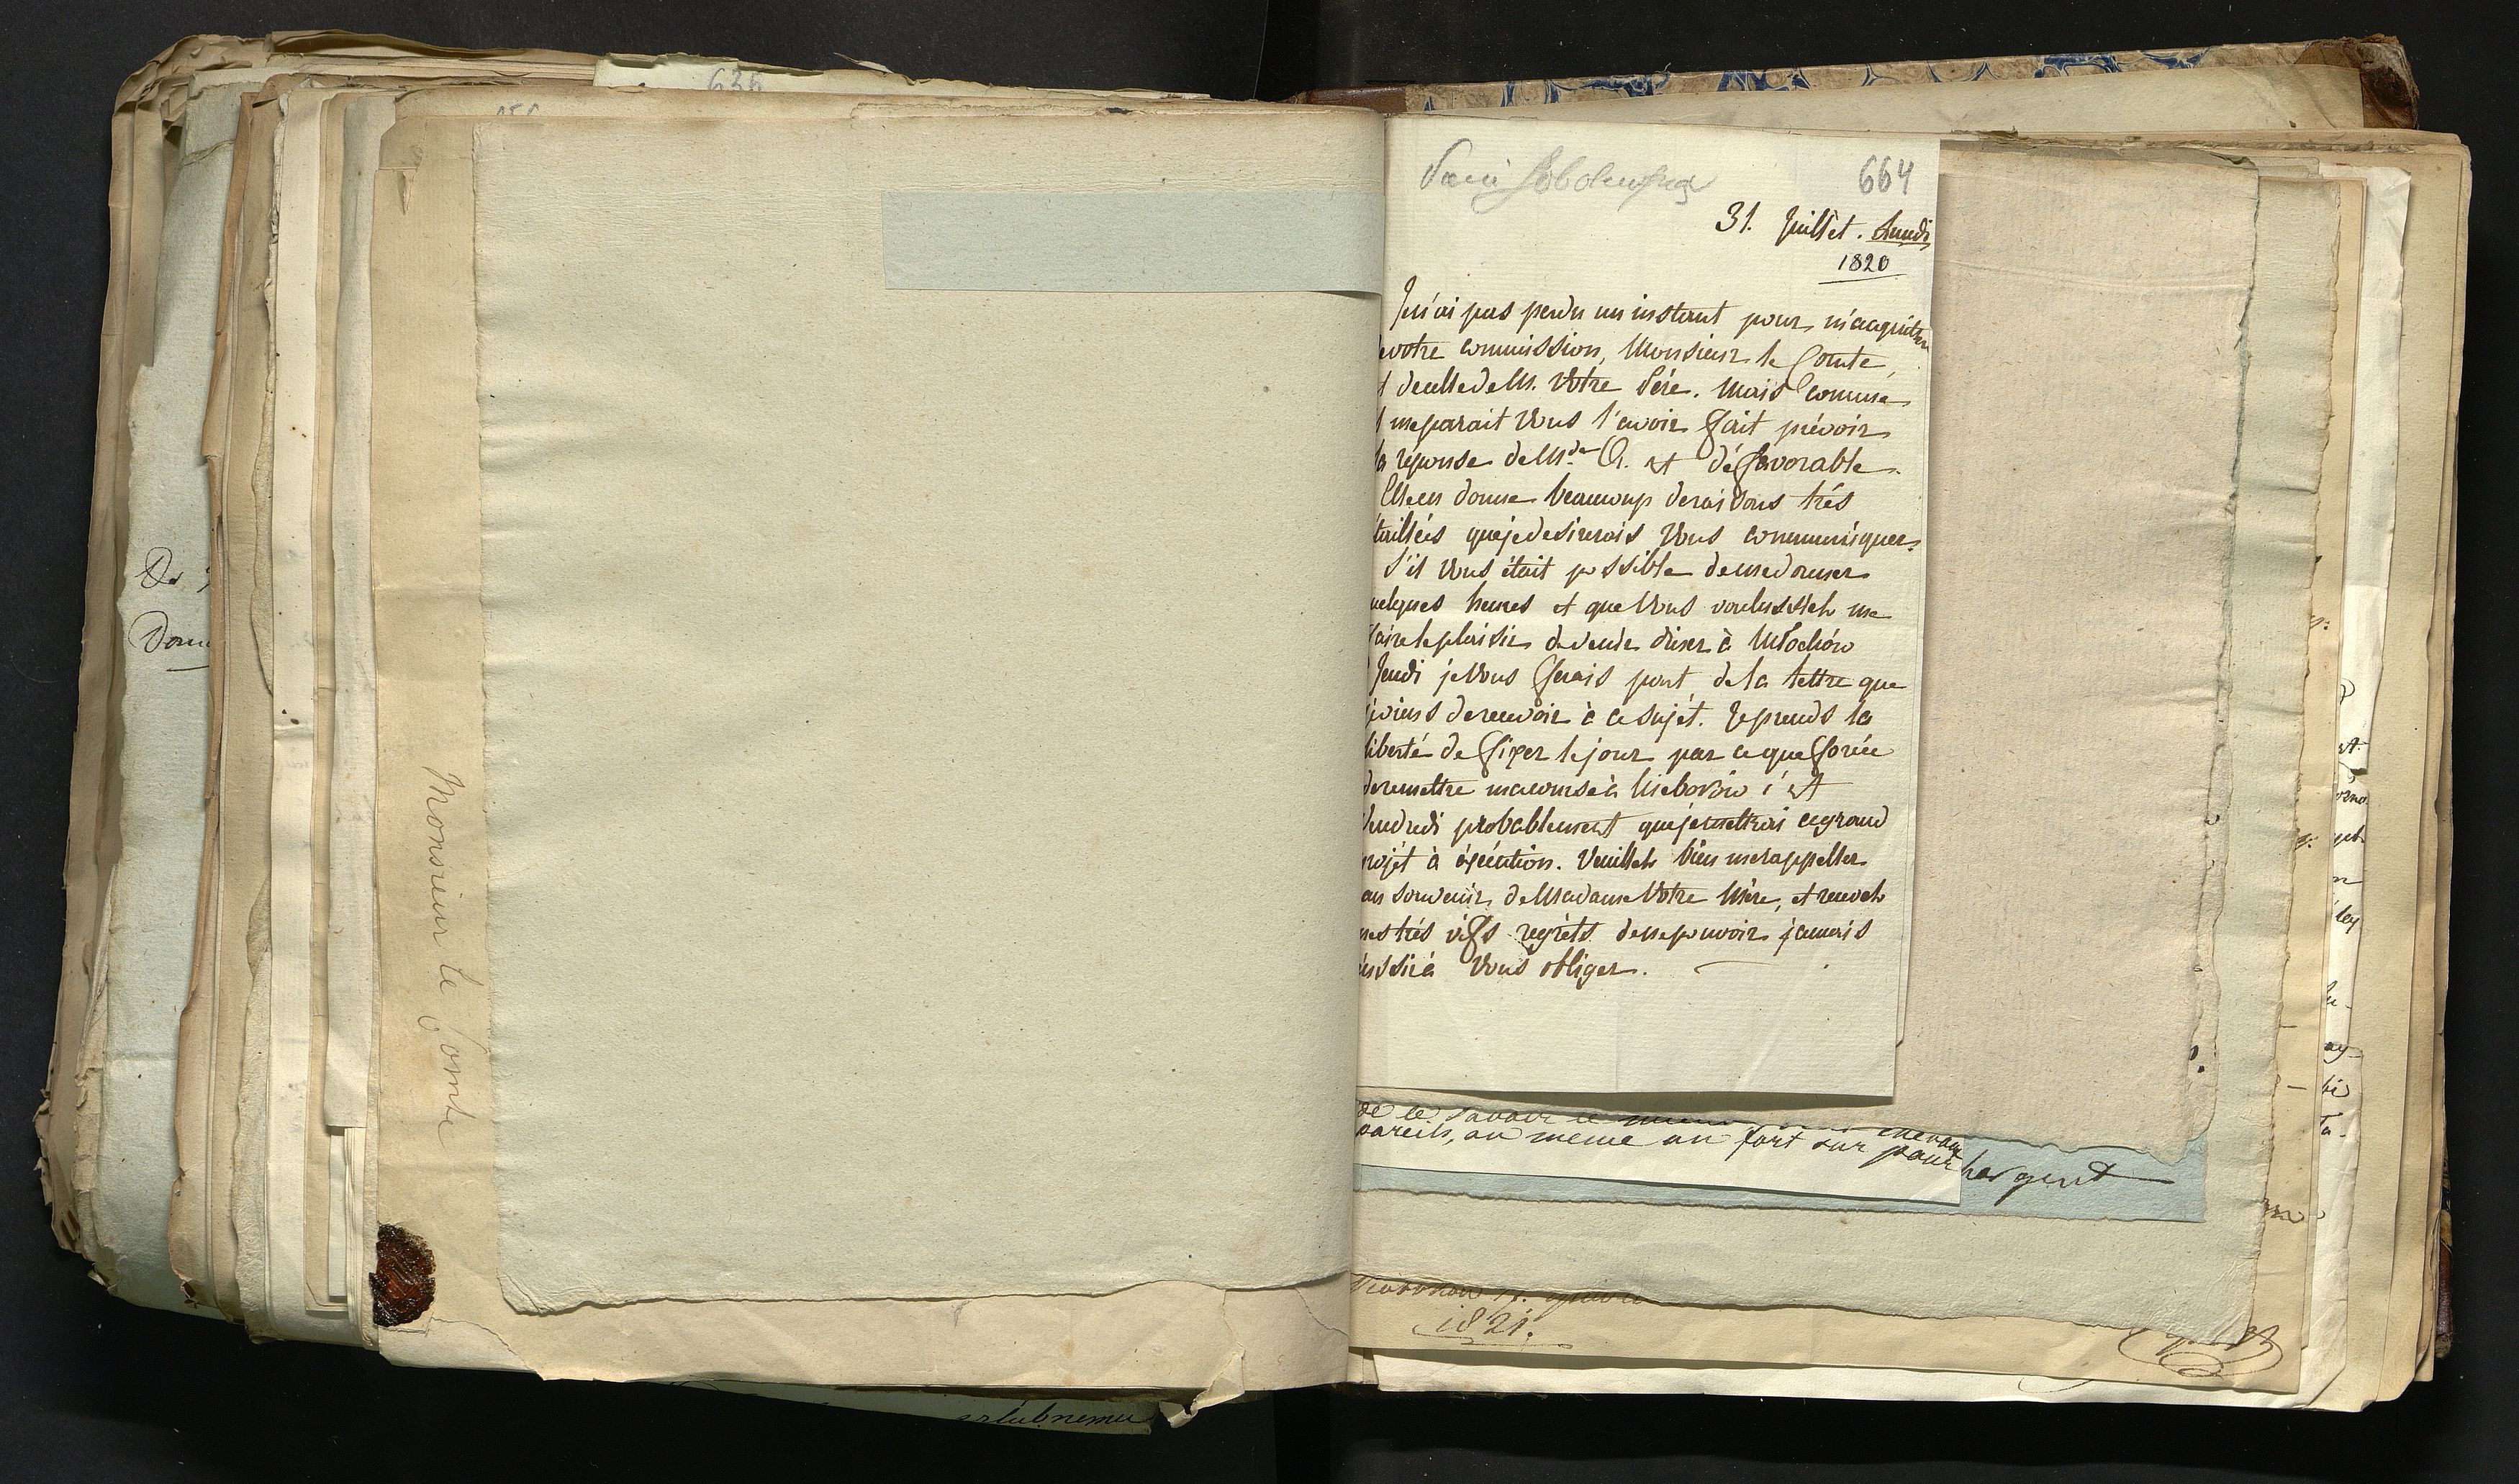 636
Monsieur le Comte
664
31. Juillet. Lundi
1820
Je n'ai pas perdu un instant pour m'acquitter
de votre commission, Monsieur le Comte,
et de celle de M. Votre Père. Mais comme
il me parait Vous l'avoir fait prévoir
la réponse de Mde O. est défavorable.
Elle en donne beaucoup de raisons trés
taillées que je desirerois Vous communiquer.
S'il Vous était possible de me donner
uelques heures et que Vous voulussiéz me
faire le plaisir de venir diner à Młochów
Jeudi je Vous ferais part de la lettre que
je viens de recevoir à ce sujét. Je prends la
liberté de fixer le jour par ce que forcée
de remettre ma course à Nieborów c'est
Vendredi probablement que je mettrai ce grand
rojét à éxécution. Veuilléz bien me rappeller
au souvenir de Madame Votre Mère, et recevéz
mes trés vifs regréts de ne pouvoir jamais
éussir à Vous obliger.
de le savoir
chevaux
pareils, ou même un fort sur pour
hargent
1821.